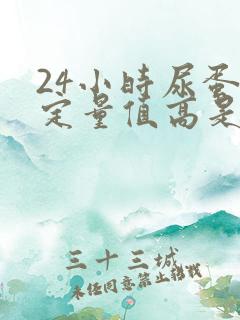 24小时尿蛋
定量值高是
三十三城
未经同意禁止转载